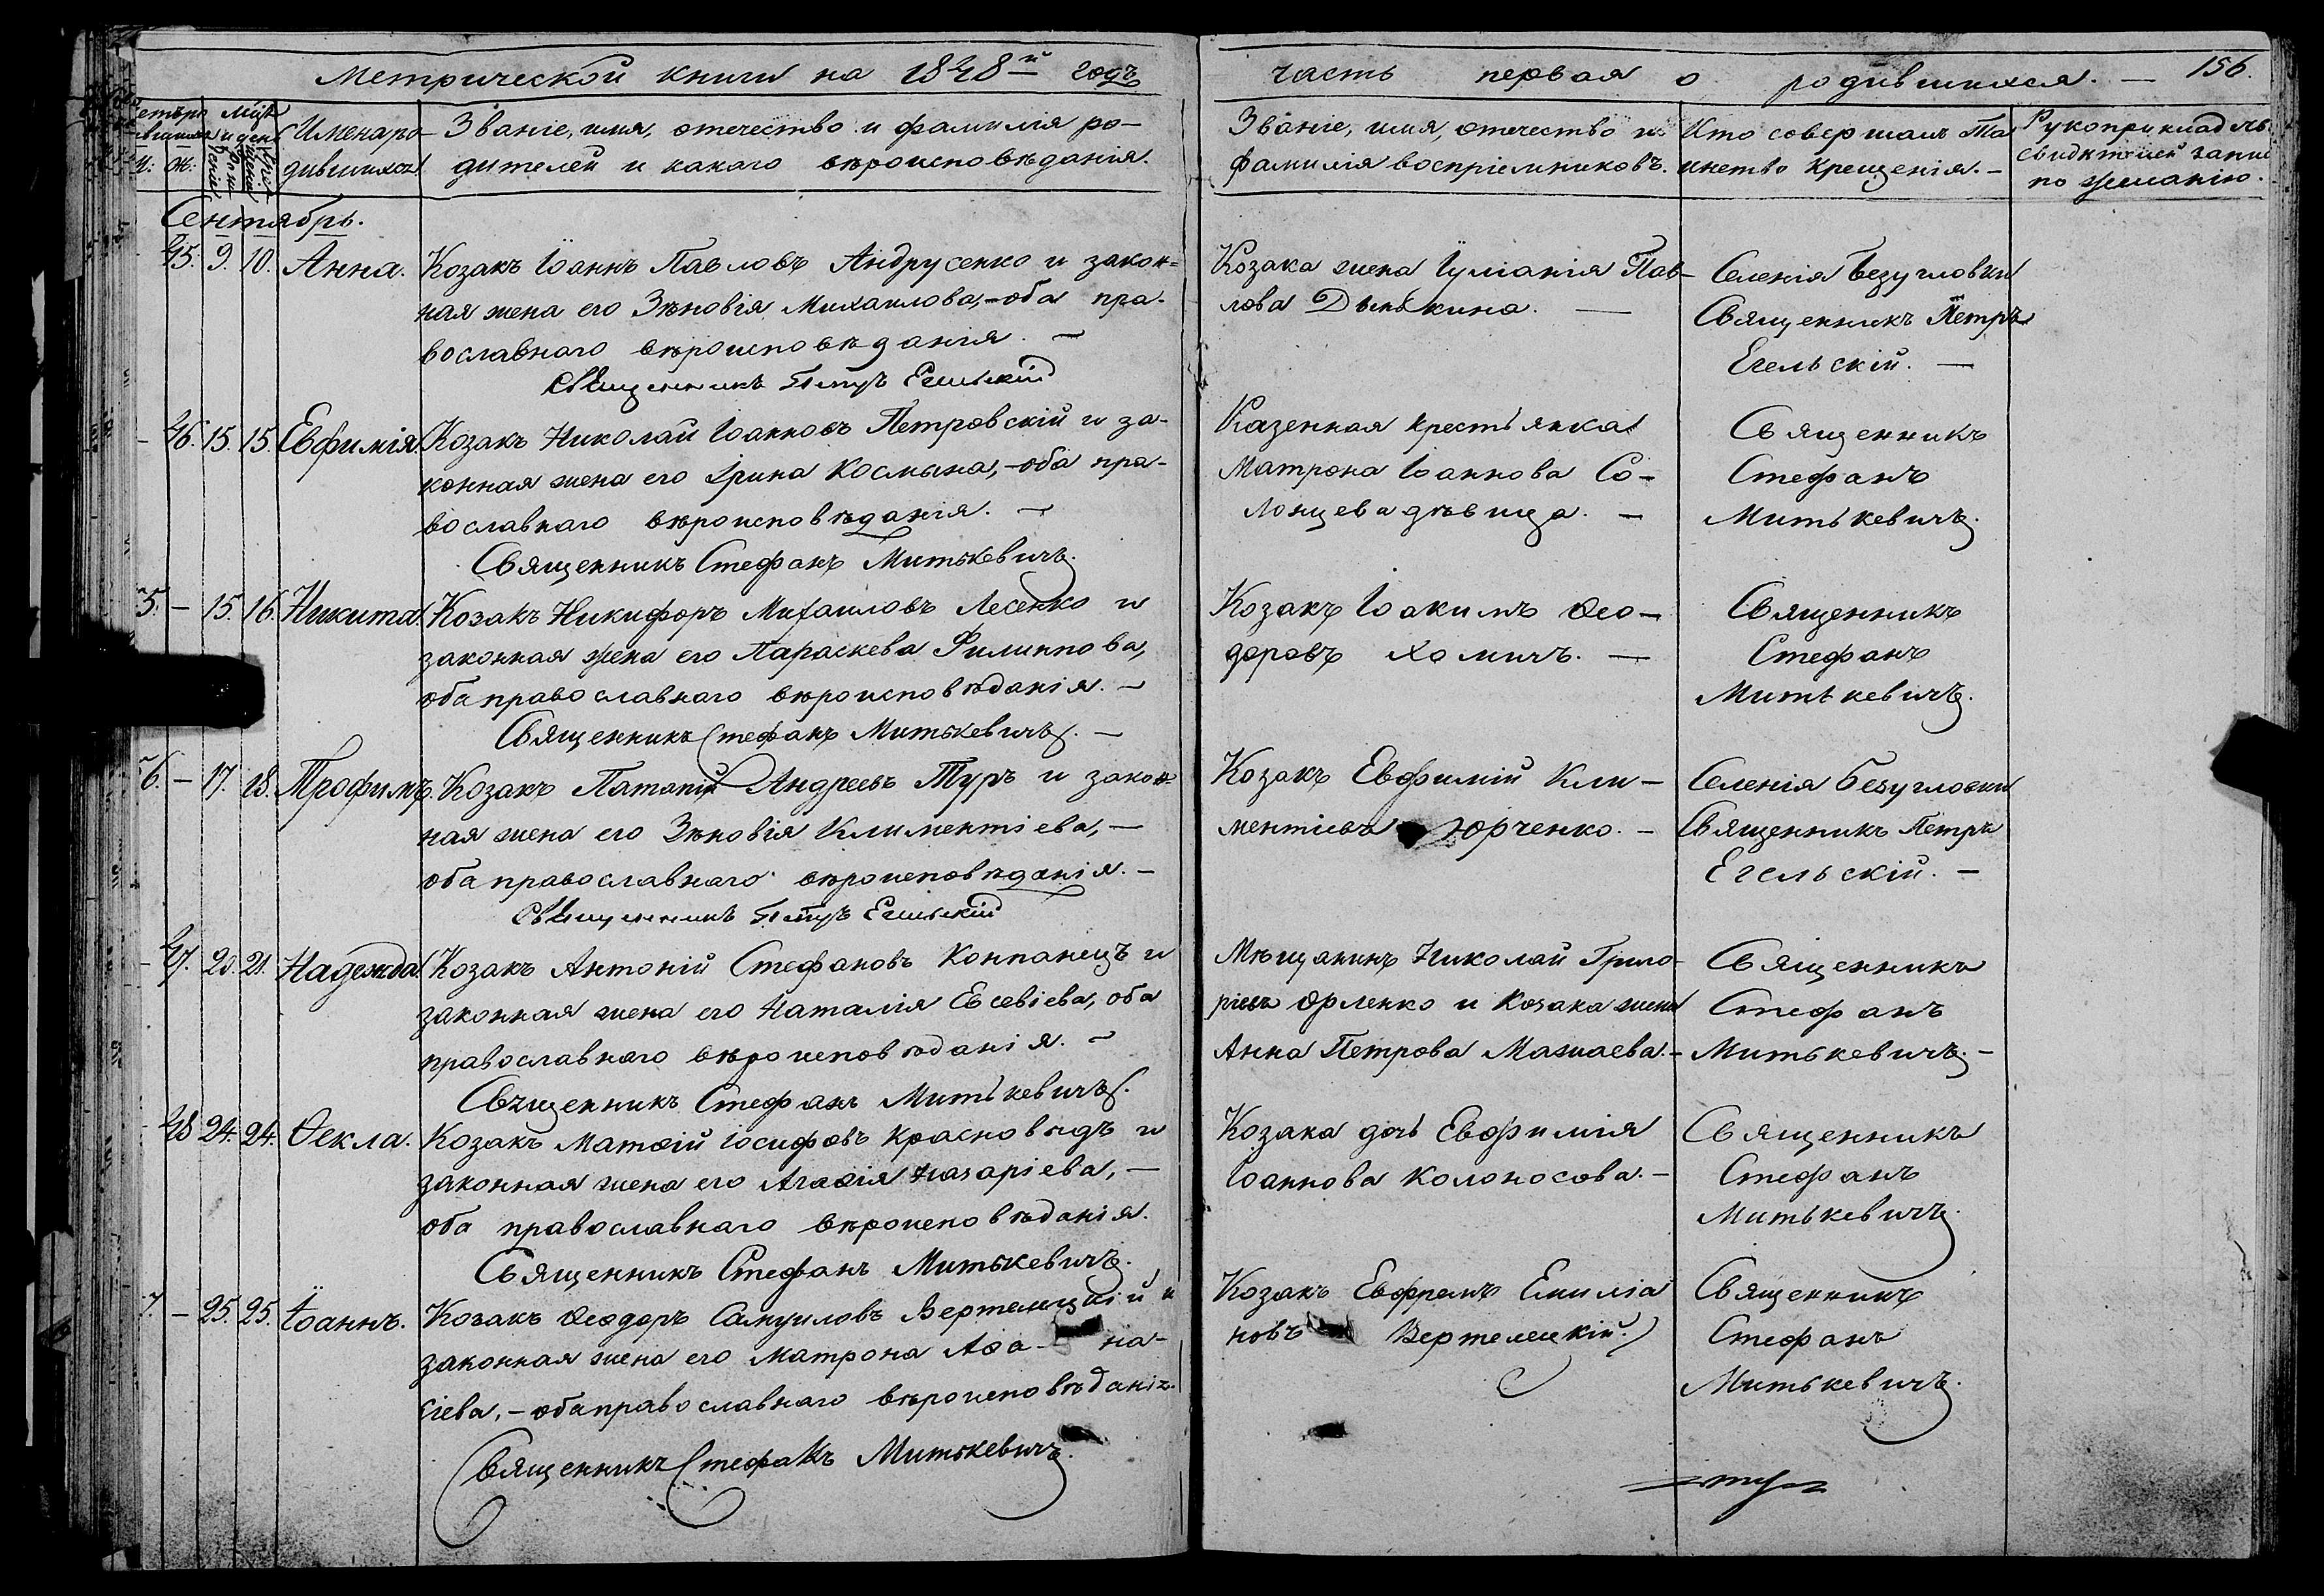 Метрической книги на 1848й годъ
часть первая о родившихся. — 156.
Имена ро-
дившихся
Званіе, имя, отечество и фамилія ро-
дителей и какаго вѣроисповѣданія.
Званіе, имя, отечество и
фамилія воспріемниковъ.
Кто совершалъ Та
инство крещенія. —
Рукоприкладств
свидѣтелей запис
по желанію.
Сентябрь.
45. 9. 10. Анна.
Козакъ Іоаннъ Павловъ Андрусенко и закон=
ная жена его Зѣновія Михаилова, – оба пра-
вославнаго вѣроисповѣданія. —
Священникъ Петръ Егельскій
Козака жена Іуліанія Пав-
лова Дынькина. —
Селенія Безугловки
Священникъ Петръ
Егельскій. —
— 46. 15. 15. Евфимія.
Козакъ Николай Іоанновъ Петровскій и за-
конная жена его Ірина Космына, – оба пра-
вославнаго вѣроисповѣданія. —
Священникъ Стефанъ Митькевичъ.
Казенная крестьянка
Матрона Іоаннова Со-
лонцева дѣвица. —
Священникъ
Стефанъ
Митькевичъ.
5. — 15. 16. Никита.
Козакъ Никифоръ Михаиловъ Лесенко и
законная жена его Параскева Филиппова,
оба православнаго вѣроисповѣданія. —
Священникъ Стефанъ Митькевичъ. —
Козакъ Іоакимъ Ѳео-
доровъ Хомичъ. —
Священникъ
Стефанъ
Митькевичъ.
6. — 17. 18. Трофимъ.
Козакъ Патапій Андреевъ Туръ и закон=
ная жена его Зѣновія Климентіева, —
оба православнаго вѣроисповѣданія. —
Священникъ Петръ Егельскій
Козакъ Евфимій Кли-
ментіевъ Юрченко. —
Селенія Безугловки
Священникъ Петръ
Егельскій. —
— 47. 20. 21. Надежда.
Козакъ Антоній Стефановъ Конпанецъ и
законная жена его Наталія Евсевіева, оба
православнаго вѣроисповѣданія. —
Священникъ Стефанъ Митькевичъ.
Мѣщанинъ Николай Григо-
ріевъ Орленко и Козака жена
Анна Петрова Мазиаева. —
Священникъ
Стефанъ
Митькевичъ. —
48 24. 24. Ѳекла.
Козакъ Матѳій Іосифовъ Красновидъ и
законная жена его Агаѳія Назаріева, —
оба православнаго вѣроисповѣданія.
Священникъ Стефанъ Митькевичъ.
Козака дочь Евфимія
Іоаннова Колоносова. —
Священникъ
Стефанъ
Митькевичъ.
7. — 25. 25. Іоаннъ.
Козакъ Ѳеодоръ Самуиловъ Вертелецкій и
законная жена его Матрона Аѳа- на-
сіева, – оба православнаго вѣроисповѣданія.
Священникъ Стефанъ Митькевичъ.
Козакъ Евфремъ Емиліа
новъ Вертелецкій.
Священникъ
Стефанъ
Митькевичъ.